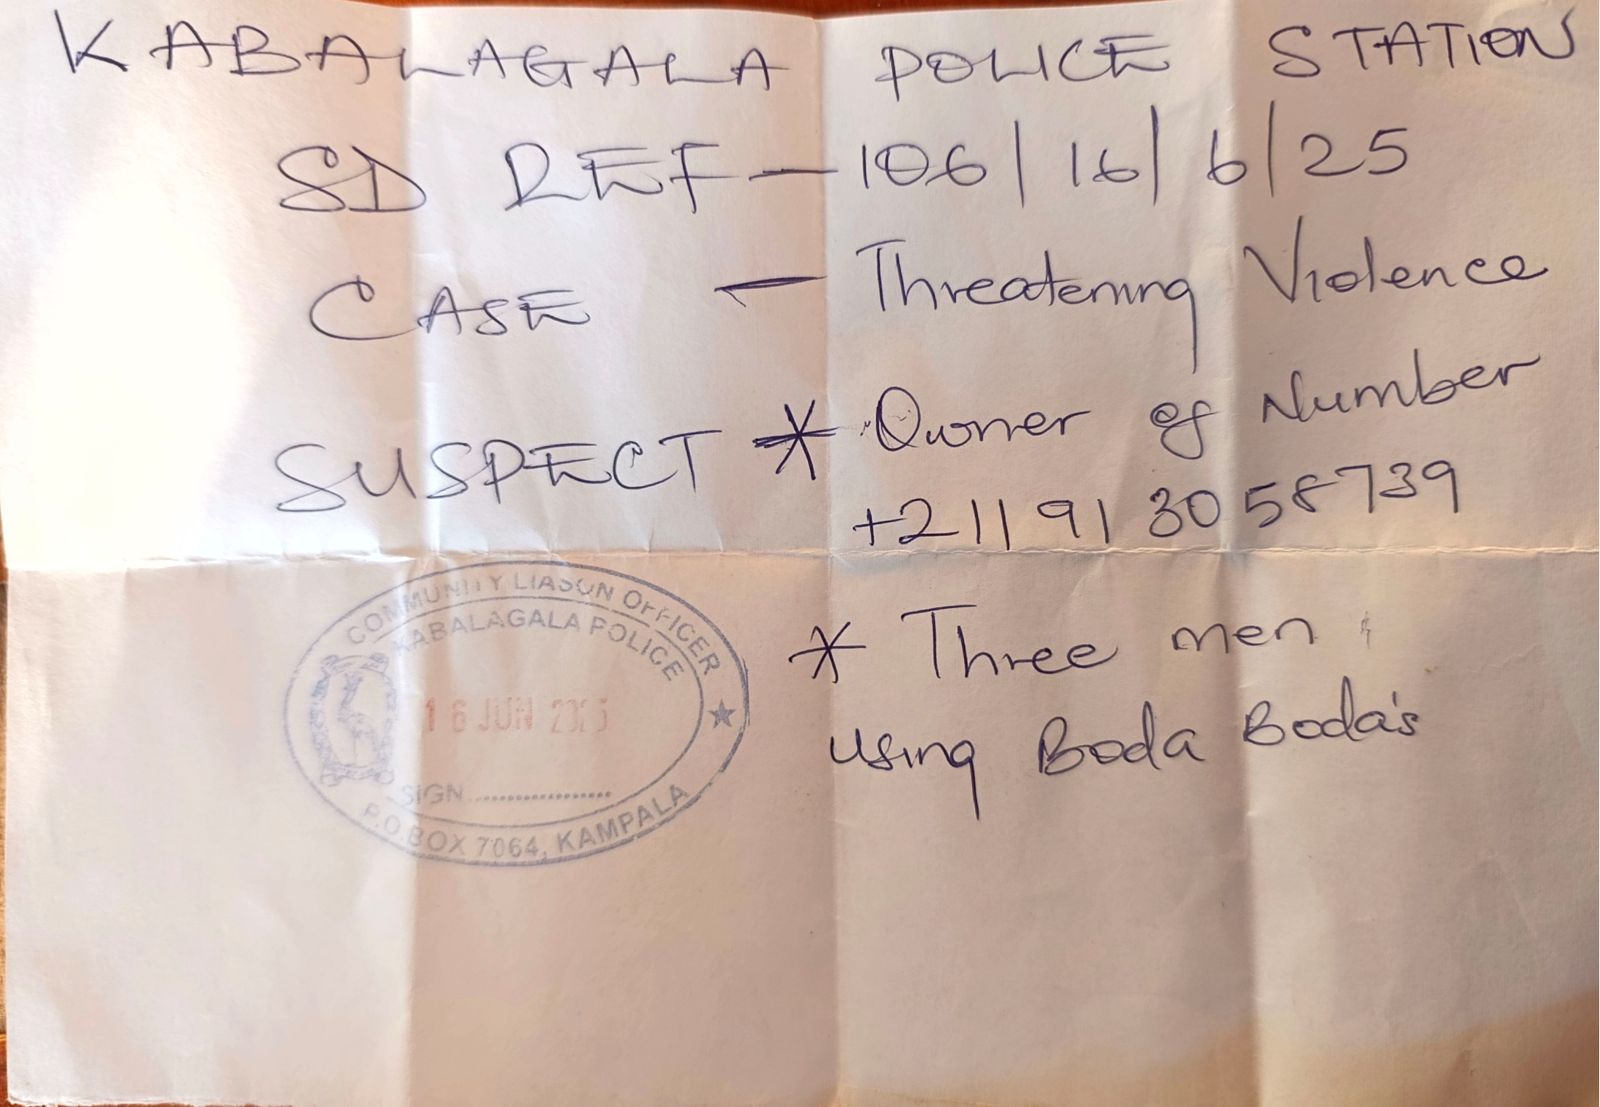 KABALAGALA POLICE STATION
SD REF — 106/16/6/25
CASE — Threatening Violence
SUSPECT * Owner of Number
+211 91 30 58739
* Three men
using Boda Boda's
COMMUNITY LIASON OFFICER
KABALAGALA POLICE
16 JUN 2025
SIGN ....................
P.O.BOX 7064, KAMPALA